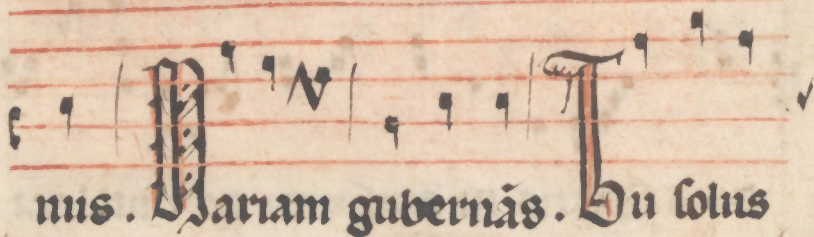 nus. Mariam gubernās. Tu solus